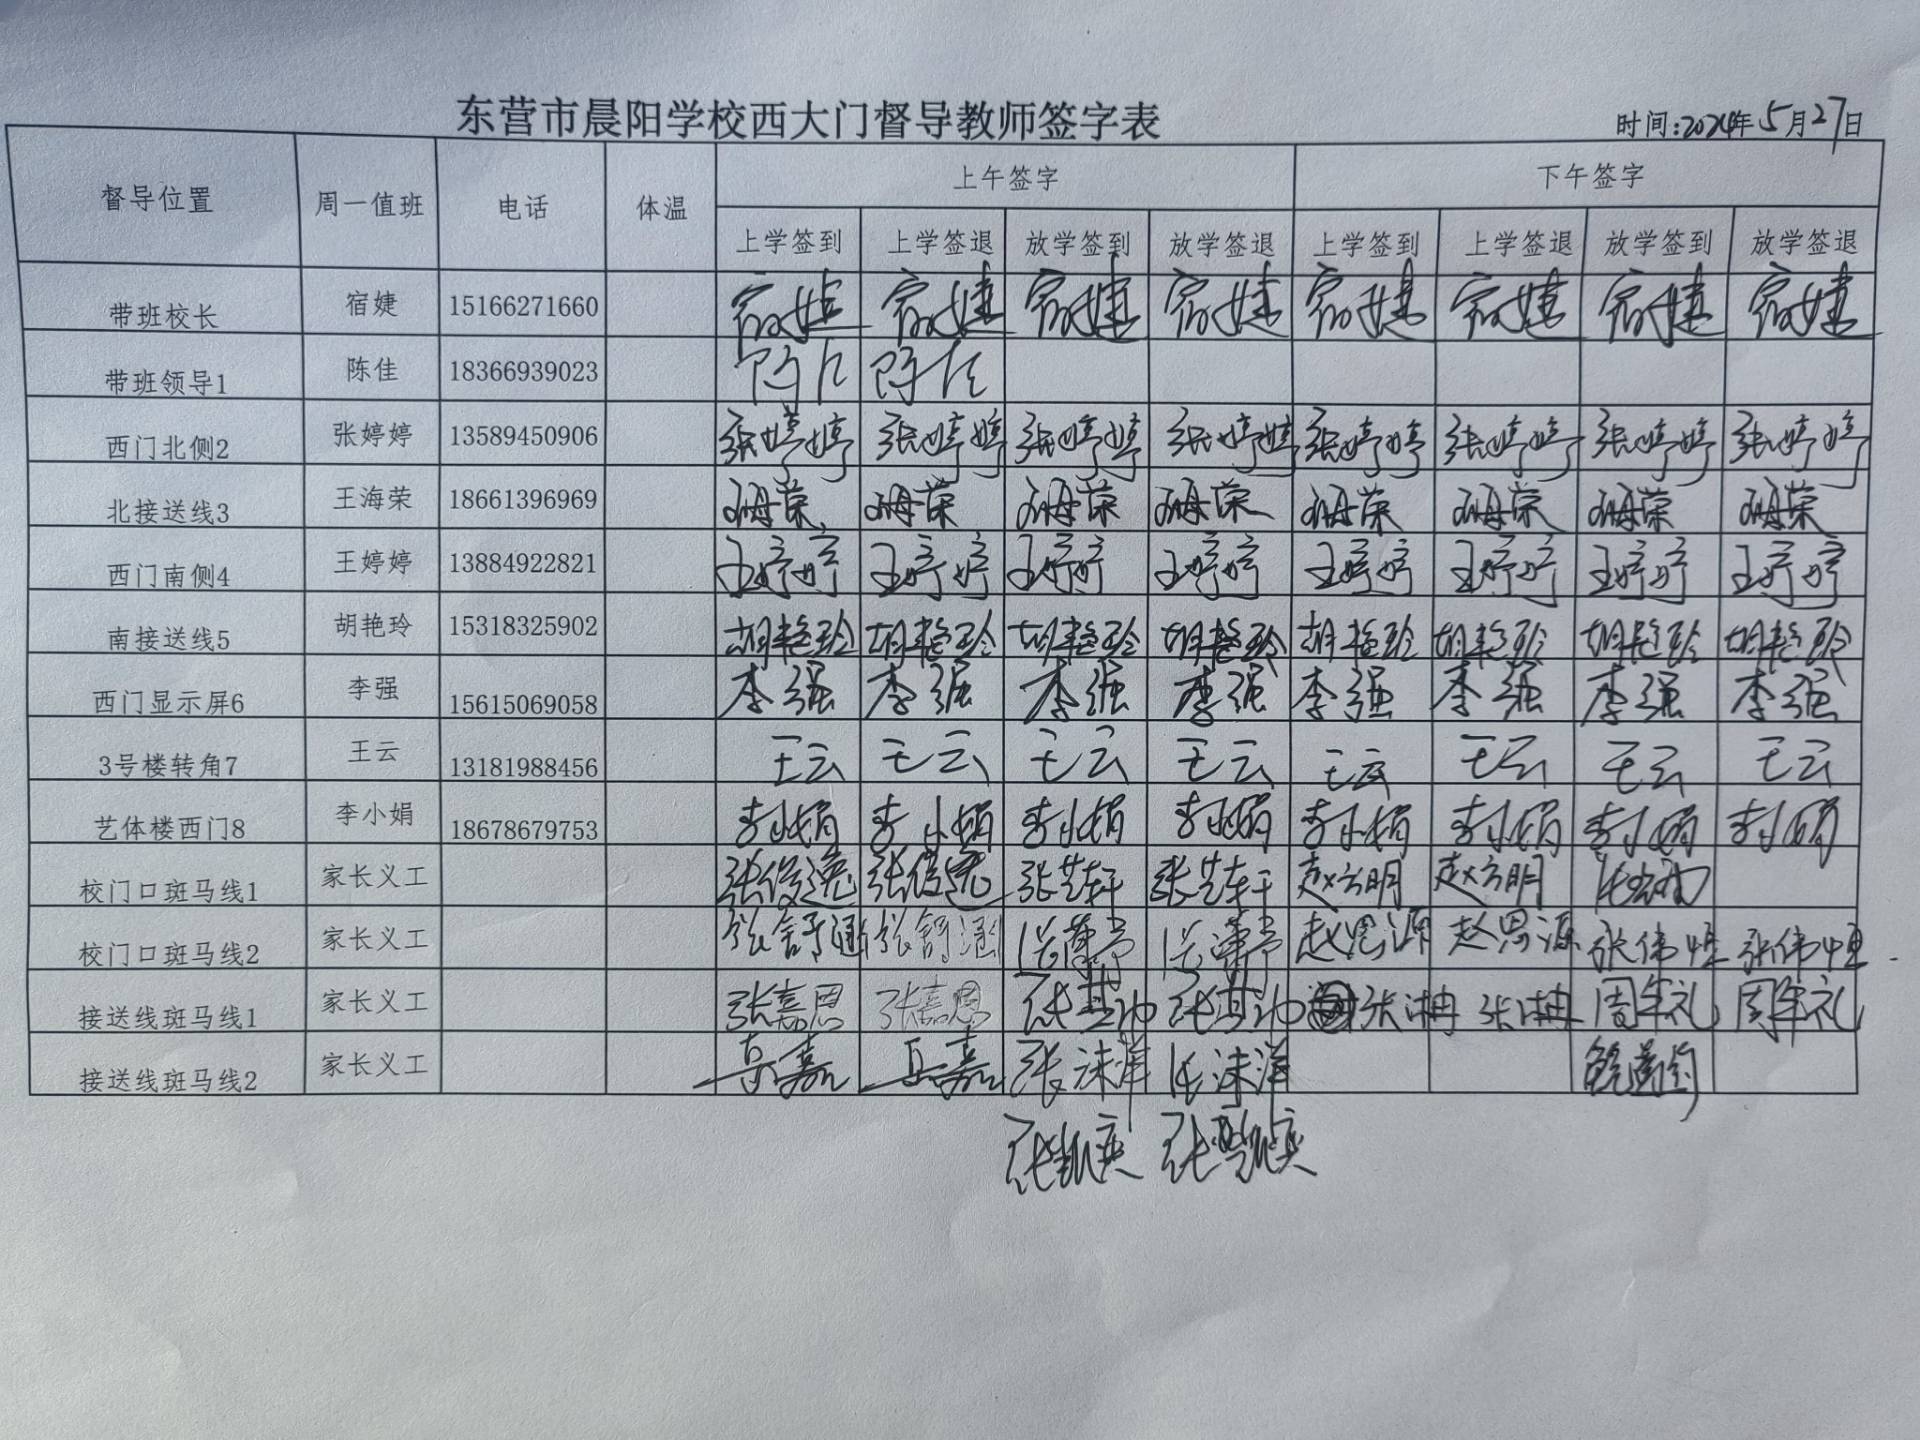 东营市晨阳学校西大门督导教师签字表
时间:2024年5月27日
督导位置 周一值班 电话 体温 上午签字 下午签字
上学签到 上学签退 放学签到 放学签退 上学签到 上学签退 放学签到 放学签退
带班校长 宿婕 15166271660 宿婕 宿婕 宿婕 宿婕 宿婕 宿婕 宿婕 宿婕
带班领导1 陈佳 18366939023 陈佳 陈佳
西门北侧2 张婷婷 13589450906 张婷婷 张婷婷 张婷婷 张婷婷 张婷婷 张婷婷 张婷婷 张婷婷
北接送线3 王海荣 18661396969 王海荣 王海荣 王海荣 王海荣 王海荣 王海荣 王海荣 王海荣
西门南侧4 王婷婷 13884922821 王婷婷 王婷婷 王婷婷 王婷婷 王婷婷 王婷婷 王婷婷 王婷婷
南接送线5 胡艳玲 15318325902 胡艳玲 胡艳玲 胡艳玲 胡艳玲 胡艳玲 胡艳玲 胡艳玲 胡艳玲
西门显示屏6 李强 15615069058 李强 李强 李强 李强 李强 李强 李强 李强
3号楼转角7 王云 13181988456 王云 王云 王云 王云 王云 王云 王云 王云
艺体楼西门8 李小娟 18678679753 李小娟 李小娟 李小娟 李小娟 李小娟 李小娟 李小娟 李小娟
校门口斑马线1 家长义工 张俊逸 张俊逸 张艺轩 张艺轩 赵方明 赵方明
校门口斑马线2 家长义工 张舒涵 张舒涵 赵思源 赵思源 张伟恒 张伟恒
接送线斑马线1 家长义工 张嘉恩 张嘉恩 周年礼 周年礼
接送线斑马线2 家长义工 岳嘉 岳嘉 张沫洋 张沫洋